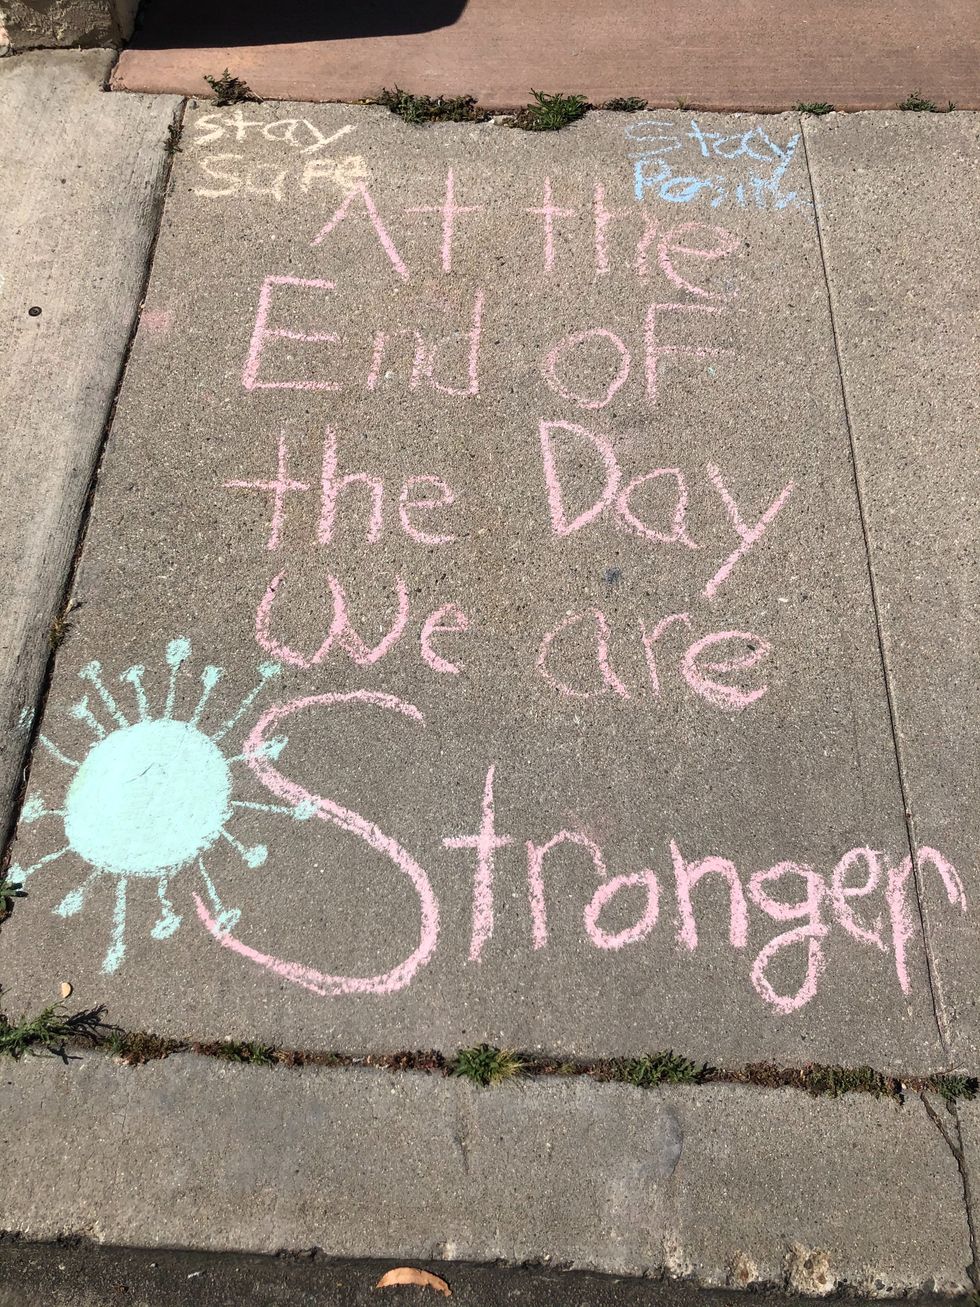 stay
Safe
Stay
Positive
At the
End oF
the Day
We are
Stronger